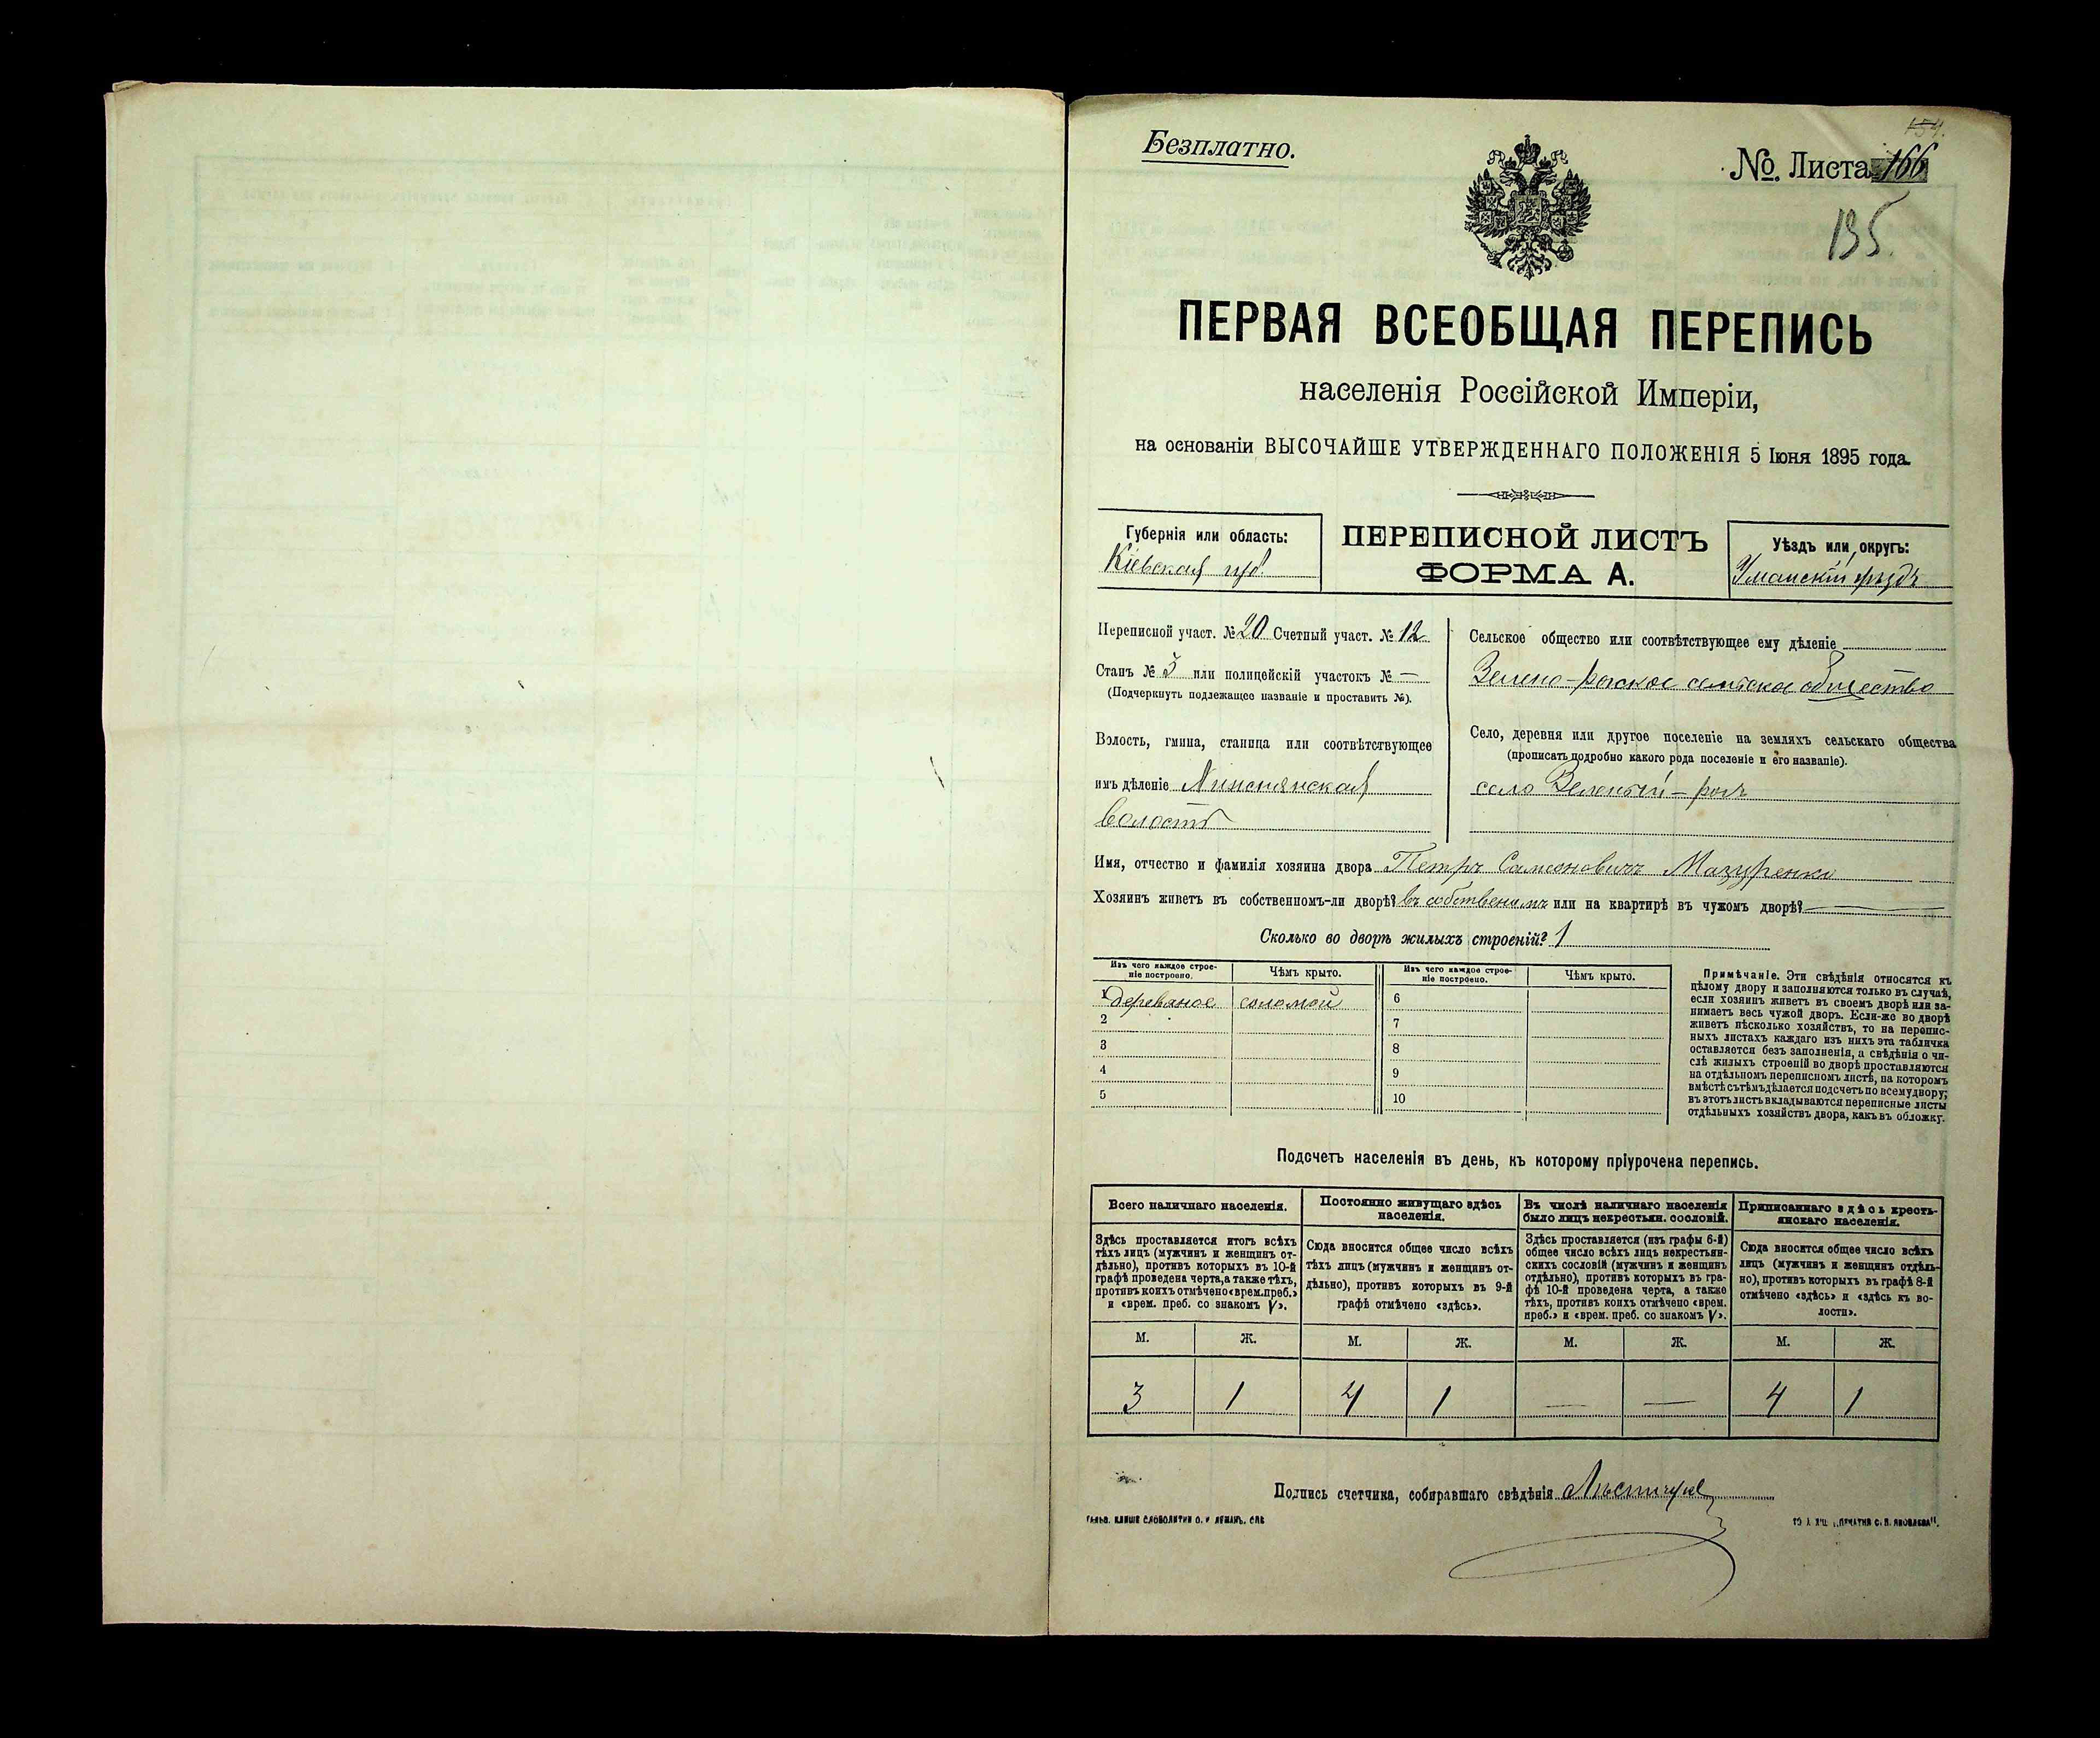 154.
Безплатно.
№. Листа 166
135.
ПЕРВАЯ ВСЕОБЩАЯ ПЕРЕПИСЬ
населенія Россійской Имперіи,
на основаніи ВЫСОЧАЙШЕ УТВЕРЖДЕННАГО ПОЛОЖЕНІЯ 5 Іюня 1895 года.
Губернія или область:
Кіевская губ.
ПЕРЕПИСНОЙ ЛИСТЪ
ФОРМА А.
Уѣздъ или округъ:
Уманскій уѣздъ
Переписной участ. № 20 Счетный участ. № 12
Станъ № 5 или полицейскій участокъ № —
(Подчеркнуть подлежащее названіе и проставить №).
Волость, гмина, станица или соотвѣтствующее
имъ дѣленіе
волость
Сельское общество или соотвѣтствующее ему дѣленіе
Зелено-рогское сельское общество
Село, деревня или другое поселеніе на земляхъ сельскаго общества
(прописать подробно какого рода поселеніе и его названіе).
село Зеленый-рогъ
Имя, отчество и фамилія хозяина двора Петръ Самсоновичъ Мазуренко
Хозяинъ живетъ въ собственномъ-ли дворѣ? въ собственомъ или на квартирѣ въ чужомъ дворѣ? —
Сколько во дворѣ жилыхъ строеній? 1
Изъ чего каждое строе-
ніе построено.
Чѣмъ крыто.
1 деревяное соломой
2
3
4
5
Изъ чего каждое строе-
ніе построено.
Чѣмъ крыто.
6
7
8
9
10
Примѣчаніе. Эти свѣдѣнія относятся къ
цѣлому двору и заполняются только въ случаѣ,
если хозяинъ живетъ въ своемъ дворѣ или за-
нимаетъ весь чужой дворъ. Если-же во дворѣ
живетъ нѣсколько хозяйствъ, то на перепис-
ныхъ листахъ каждаго изъ нихъ эта табличка
оставляется безъ заполненія, а свѣдѣнія о чи-
слѣ жилыхъ строеній во дворѣ проставляются
на отдѣльномъ переписномъ листѣ, на которомъ
вмѣстѣ съ тѣмъ дѣлается подсчетъ по всему двору;
въ этотъ листъ вкладываются переписные листы
отдѣльныхъ хозяйствъ двора, какъ въ обложку.
Подсчетъ населенія въ день, къ которому пріурочена перепись.
Всего наличнаго населенія.
Здѣсь проставляется итогъ всѣхъ
тѣхъ лицъ (мужчинъ и женщинъ от-
дѣльно), противъ которыхъ въ 10-й
графѣ проведена черта, а также тѣхъ,
противъ коихъ отмѣчено «врем. преб.»
и «врем. преб. со знакомъ V».
М. Ж.
3 1
Постоянно живущаго здѣсь
населенія.
Сюда вносится общее число всѣхъ
тѣхъ лицъ (мужчинъ и женщинъ от-
дѣльно), противъ которыхъ въ 9-й
графѣ отмѣчено «здѣсь».
М. Ж.
4 1
Въ числѣ наличнаго населенія
было лицъ некрестьян. сословій.
Здѣсь проставляется (изъ графы 6-й)
общее число всѣхъ лицъ некрестьян-
скихъ сословій (мужчинъ и женщинъ
отдѣльно), противъ которыхъ въ гра-
фѣ 10-й проведена черта, а также
тѣхъ, противъ коихъ отмѣчено «врем.
преб.» и «врем. преб. со знакомъ V».
М. Ж.
— —
Приписаннаго здѣсь кресть-
янскаго населенія.
Сюда вносится общее число всѣхъ
лицъ (мужчинъ и женщинъ отдѣль-
но), противъ которыхъ въ графѣ 8-й
отмѣчено «здѣсь» и «здѣсь къ во-
лости».
М. Ж.
4 1
Подпись счетчика, собиравшаго свѣдѣнія